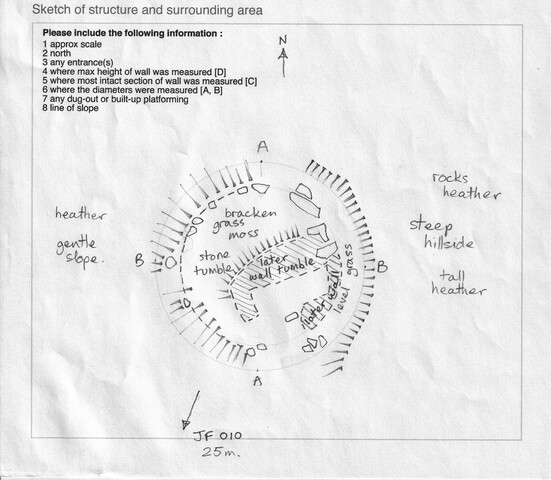 Sketch of structure and surrounding area
Please include the following information :
1 approx scale
2 north
3 any entrance(s)
4 where max height of wall was measured [D]
5 where most intact section of wall was measured [C]
6 where the diameters were measured [A, B]
7 any dug-out or built-up platforming
8 line of slope
N
A
rocks
heather
heather
gentle
slope.
bracken
grass
moss
steep
hillside
stone
tumble
later
wall tumble
B
B
level grass
later wall
tall
heather
A
JF 010
25m.